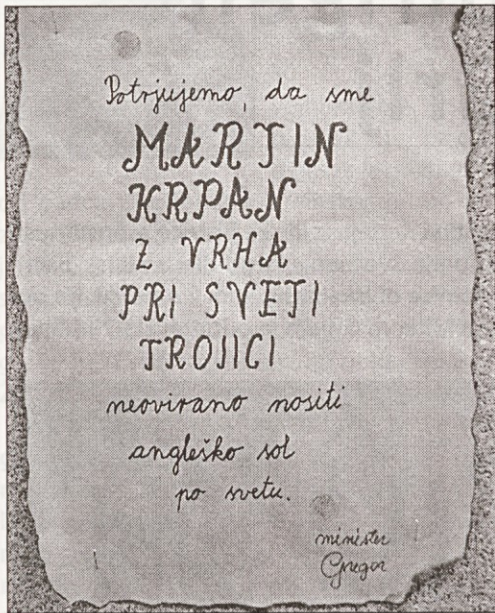 Potrjujemo, da sme
MARTIN
KRPAN
Z VRHA
PRI SVETI
TROJICI
neovirano nositi
angleško sol
po svetu.
minister
Gregor